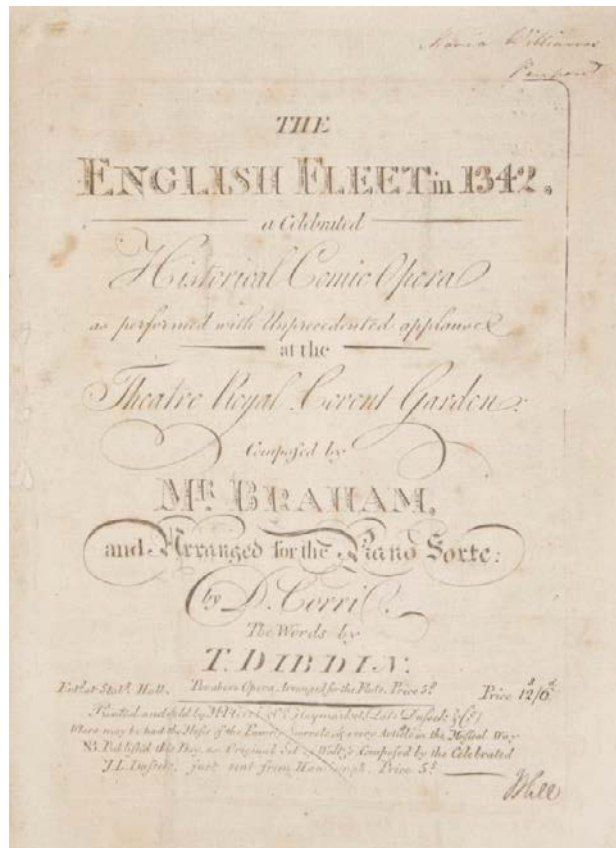 Maria Williams
Penpont
THE
ENGLISH FLEET in 1342,
a Celebrated
Historical Comic Opera
as performed with Unprecedented applause
at the
Theatre Royal Covent Garden:
Composed by
MR. BRAHAM,
and Arranged for the Piano Forte:
by D. Corri.
The Words by
T. DIBDIN.
Ent. at Stat. Hall. The above Opera Arranged for the Flute. Price 5s. Price 12s/6d
Printed and Sold by M. Corri & Co. Haymarket, (Late Dussek & Co.)
Where may be had the Music of the and every Article in the Musical Way
NB. Published this Day, an Original Set of Waltz's Composed by the Celebrated
J. L. Dussek, just sent from Hamburgh. Price 5s